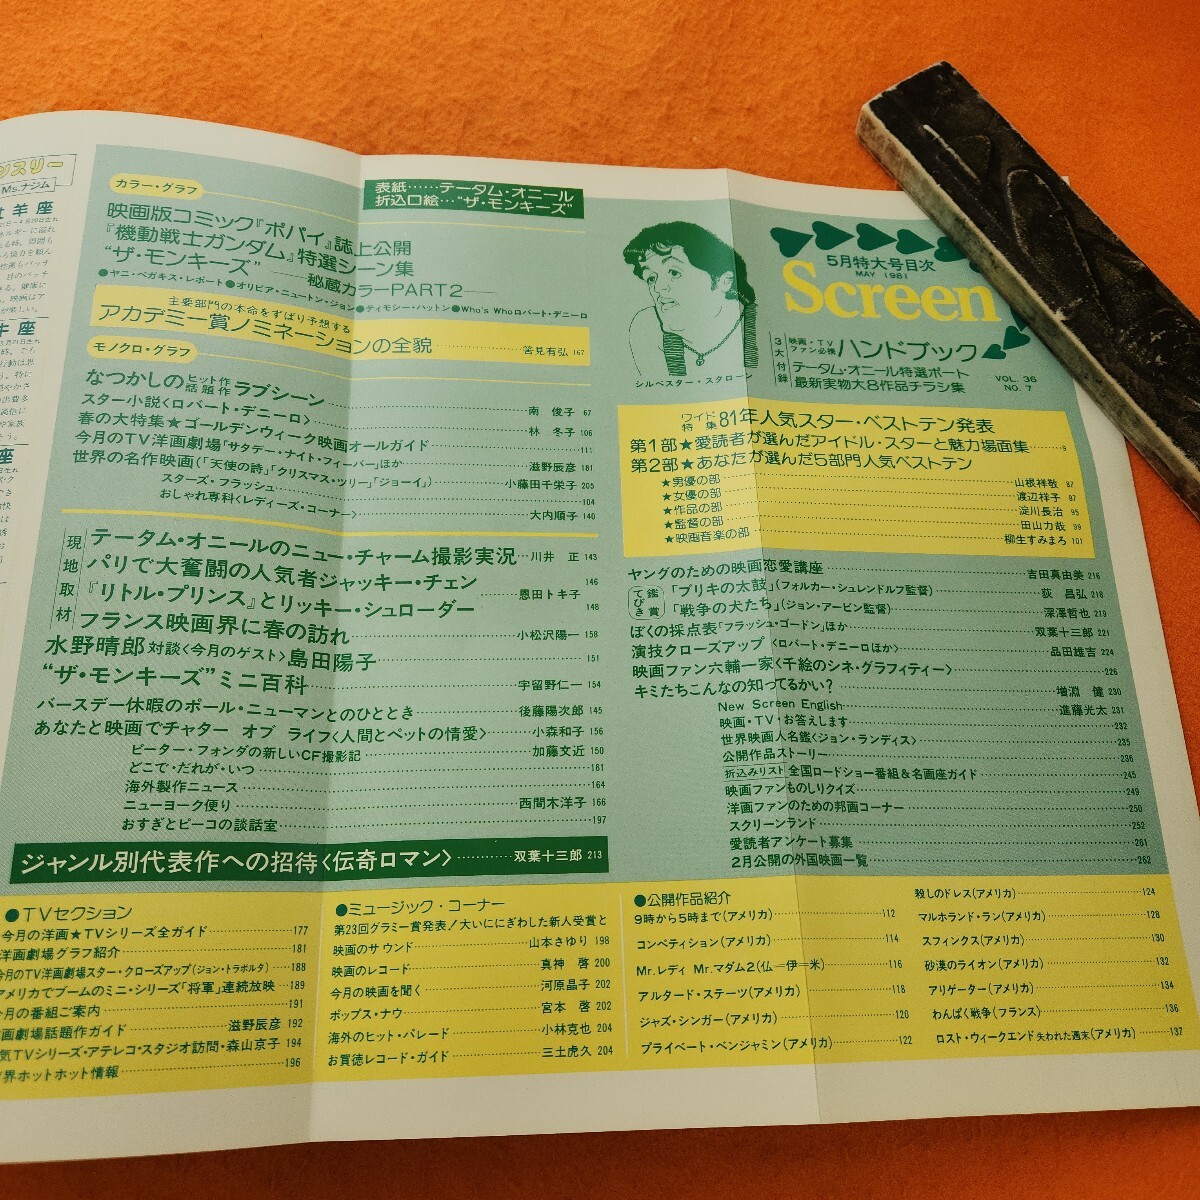 ンスリー
Ms.ナジム
牡羊座
牛座
座
カラー・グラフ
表紙……テータム・オニール
折込口絵…“ザ・モンキーズ”
映画版コミック『ポパイ』誌上公開
『機動戦士ガンダム』特選シーン集
“ザ・モンキーズ”──秘蔵カラーPART2──
●ヤニ・ベガキス・レポート●オリビア・ニュートン・ジョン●ティモシー・ハットン●Who's Whoロバート・デニーロ
主要部門の本命をずばり予想する
アカデミー賞ノミネーションの全貌……筈見有弘 167
モノクロ・グラフ
なつかしのヒット作話題作ラブシーン……南 俊子 67
スター小説〈ロバート・デニーロ〉……林 冬子 106
春の大特集★ゴールデンウィーク映画オールガイド……111
今月のTV洋画劇場「サタデー・ナイト・フィーバー」ほか……滋野辰彦 181
世界の名作映画(「天使の詩」「クリスマス・ツリー」「ジョーイ」)……小藤田千栄子 205
スターズ・フラッシュ……104
おしゃれ専科〈レディーズ・コーナー〉……大内順子 140
現地取材
テータム・オニールのニュー・チャーム撮影実況…川井 正 143
パリで大奮闘の人気者ジャッキー・チェン……146
『リトル・プリンス』とリッキー・シュローダー……恩田トキ子 148
フランス映画界に春の訪れ……小松沢陽一 158
水野晴郎対談〈今月のゲスト〉島田陽子……151
“ザ・モンキーズ”ミニ百科……宇留野仁一 154
バースデー休暇のポール・ニューマンとのひととき……後藤陽次郎 145
あなたと映画でチャター オブ ライフ〈人間とペットの情愛〉……小森和子 156
ピーター・フォンダの新しいCF撮影記……加藤文近 150
どこで・だれが・いつ……161
海外製作ニュース……164
ニューヨーク便り……西間木洋子 166
おすぎとピーコの談話室……197
ジャンル別代表作への招待〈伝奇ロマン〉………双葉十三郎 213
シルベスター・スタローン
5月特大号目次
MAY 1981
Screen
3大付録
映画・TVファン必携ハンドブック
テータム・オニール特選ポート
最新実物大8作品チラシ集
VOL. 36
NO. 7
ワイド特集 81年人気スター・ベストテン発表
第1部★愛読者が選んだアイドル・スターと魅力場面集……9
第2部★あなたが選んだ5部門人気ベストテン
★男優の部……山根祥敬 87
★女優の部……渡辺祥子 87
★作品の部……淀川長治 95
★監督の部……田山力哉 99
★映画音楽の部……柳生すみまろ 101
ヤングのための映画恋愛講座……吉田真由美 216
鑑賞てびき
「ブリキの太鼓」(フォルカー・シュレンドルフ監督)……荻 昌弘 218
「戦争の犬たち」(ジョン・アービン監督)……深澤哲也 219
ぼくの採点表「フラッシュ・ゴードン」ほか……双葉十三郎 221
演技クローズアップ〈ロバート・デニーロほか〉……品田雄吉 224
映画ファン六輔一家〈千絵のシネ・グラフィティー〉……226
キミたちこんなの知ってるかい?……増淵 健 230
New Screen English……進藤光太 231
映画・TV・お答えします……232
世界映画人名鑑〈ジョン・ランディス〉……235
公開作品ストーリー……236
折込みリスト 全国ロードショー番組&名画座ガイド……245
映画ファンものしりクイズ……249
洋画ファンのための邦画コーナー……250
スクリーンランド……252
愛読者アンケート募集……261
2月公開の外国映画一覧……262
●TVセクション
今月の洋画★TVシリーズ全ガイド……177
洋画劇場グラフ紹介……181
今月のTV洋画劇場スター・クローズアップ(ジョン・トラボルタ)…188
アメリカでブームのミニ・シリーズ「将軍」連続放映…189
今月の番組ご案内……191
画劇場話題作ガイド……滋野辰彦 192
気TVシリーズ・アテレコ・スタジオ訪問・森山京子 194
界ホットホット情報……196
●ミュージック・コーナー
第23回グラミー賞発表/大いににぎわした新人受賞と
映画のサウンド……山本さゆり 198
映画のレコード……真神 啓 200
今月の映画を聞く……河原晶子 202
ポップス・ナウ……宮本 啓 202
海外のヒット・パレード……小林克也 204
お買徳レコード・ガイド……三土虎久 204
●公開作品紹介
9時から5時まで(アメリカ)……112
コンペティション(アメリカ)……114
Mr.レディ Mr.マダム2(仏=伊=米)……116
アルタード・ステーツ(アメリカ)……118
ジャズ・シンガー(アメリカ)……120
プライベート・ベンジャミン(アメリカ)……122
殺しのドレス(アメリカ)……124
マルホランド・ラン(アメリカ)……128
スフィンクス(アメリカ)……130
砂漠のライオン(アメリカ)……132
アリゲーター(アメリカ)……134
わんぱく戦争(フランス)……136
ロスト・ウィークエンド 失われた週末(アメリカ)……137